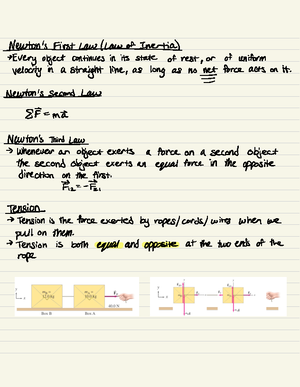 Newton's First Law (Law of Inertia)
→Every object continues in its state of rest, or of uniform
velocity in a straight line, as long as no net force acts on it.
Newton's Second Law
ΣF⃗ = ma⃗
Newton's Third Law
→ Whenever an object exerts a force on a second object
the second object exerts an equal force in the opposite
direction on the first.
F⃗₁₂ = -F⃗₂₁
Tension
→ Tension is the force exerted by ropes/cords/wires when we
pull on them.
→ Tension is both equal and opposite at the two ends of the
rope
Box B
Box A
40.0 N